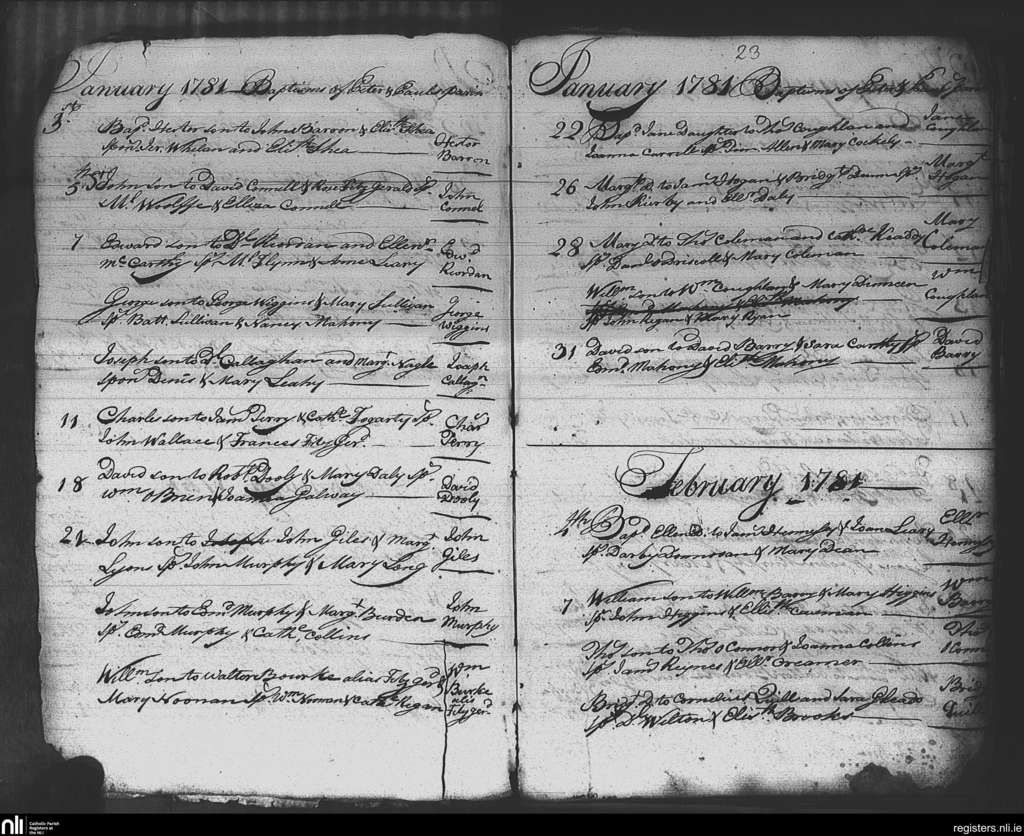 January 1781 Baptisms of Peter & Pauls parish
3d
Bap. Hester son to John Barron & Eliz.th Shea
Spon. Jer. Whelan and Eliz.th Shea
Hestor
Barron
5th John son to David Connell & Rose Fitzgerald Sp.
M. Woolffe & Elleza Connell
John
Connel
7 Edward son to Dl. Reordan and Ellen
McCarthy Sp. M. Flynn & Anne Leary
Edwd
Riordan
George son to George Wiggins & Mary Sullivan
Sp. Batt. Sullivan & Nancy Mahony
George
Wiggins
Joseph son to Dl. Callaghan and Marg.t Nagle
Spon Denis & Mary Leahy
Joseph
Callag.n
11 Charles son to Jam.s Perry & Cath.e Fogarty Sp.
John Wallace & Frances Fitzger.d
Char
Perry
18 David son to Rob.t Dooly & Mary Daly Sp.
Wm O Brien & Joanna Galway
David
Dooly
21 John son to Joseph John Giles & Marg.t
Lyons Sp. John Murphy & Mary Long
John
Giles
John son to Edm.d Murphy & Marg.t Burden
Sp. Edm.d Murphy & Cath.e Collins
John
Murphy
Will.m Son to Walter Bourke alias Fitzger.d &
Mary Noonan Sp. Wm. Noonan & Cath.e Regan
Wm
Burke
alis
Fitzger.d
23
January 1781 Baptisms of Peter & Pauls
22 Bap. Jane Daughter to Tho.s Coughlan and
Joanna Carroll Sp. Allen & Mary Cockely
Jane
Coughlan
26 Marg.t D. to Jam.s Hogan & Bridg.t Dunn Sp.
John Kirby and Ell.n Daly
Marg.t
Hogan
28 Mary D. to Tho.s Coleman and Cath.e Headdy
Sp. Dan.l Odriscoll & Mary Coleman
Mary
Coleman
Will.m son to Wm Coughlan & Mary Duncen
Sp. John Regan & Mary Ryan
Wm
Coughlan
31 David son to David Barry & Sara Carthy Sp.
Edm.d Mahony & Eliz.th Mahony
David
Barry
February 1781
4th Bap. Ellen D. to Jam.s Hennessy & Joana Leary
Sp. Darby Donnovan & Mary Dean
Ell.n
7 William son to Will.m Barry & Mary Higgins
Sp. John Higgins & Elli.th Caveman
Wm
Barry
Tho.s son to Tho.s O Connor & Joanna Collins
Sp. Jam.s Keynes & Ell.n Creamer
Tho.s
Bridg.t D. to Cornelius Quill and Sara Gleads
Sp. D. Wilton & Eliz.th Brooks
Brid
Quill
nli Catholic Parish
Registers at
the NLI
registers.nli.ie